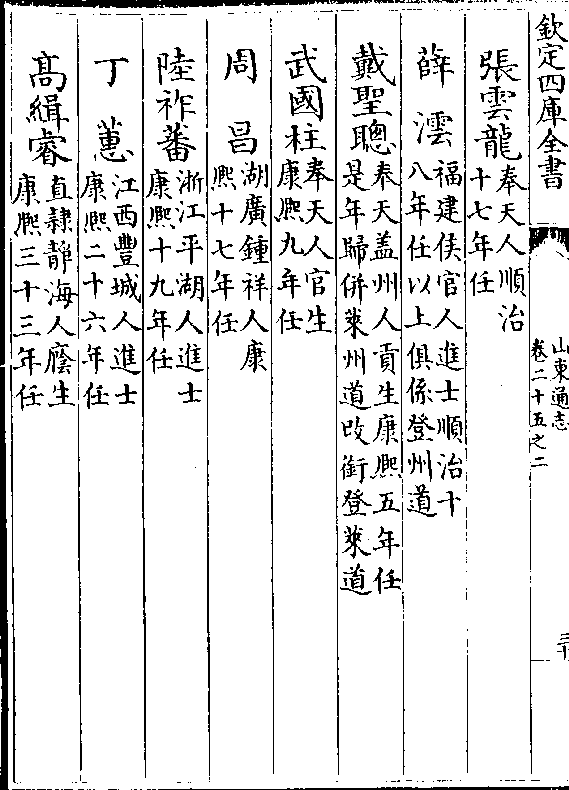 欽定四庫全書
山東通志
卷二十五之二
張雲龍奉天人順治
十七年任
薛澐福建侯官人進士順治十
八年任以上俱係登州道
戴聖聰奉天盖州人貢生康熙五年任
是年歸併萊州道改銜登萊道
武國柱奉天人官生
康熙九年任
周昌湖廣鍾祥人康
熙十七年任
陸祚蕃浙江平湖人進士
康熙十九年任
丁蕙江西豐城人進士
康熙二十六年任
高緝睿直隸靜海人廕生
康熙三十三年任